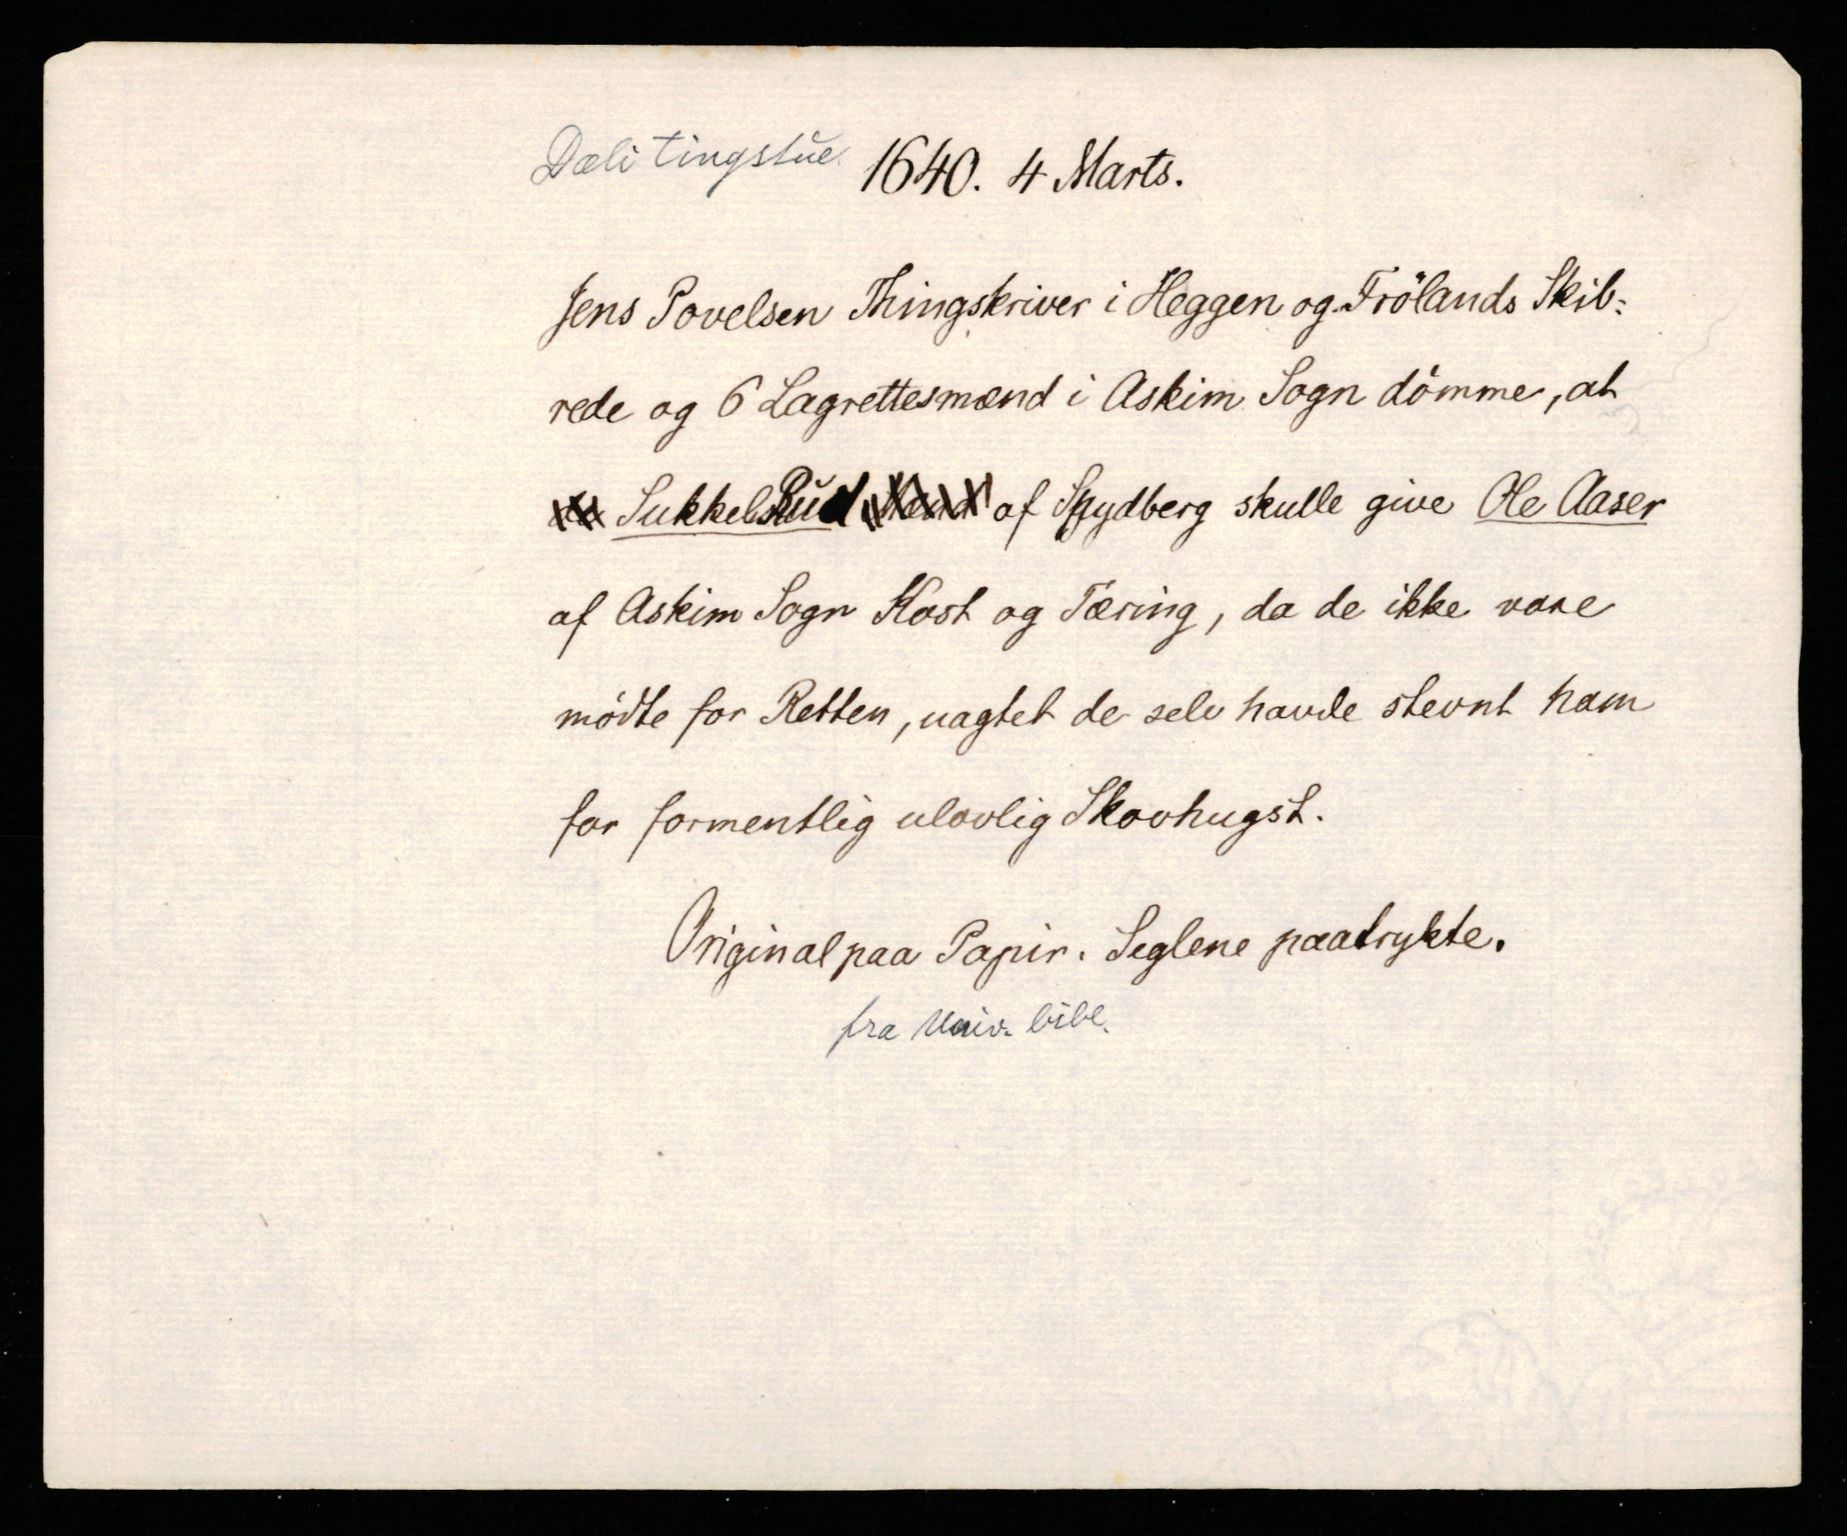 Dæli tingstue 1640. 4 Marts.
Jens Povelsen Thingskriver i Heggen og Frölands Skib-
rede og 6 Lagrettesmænd i Askim Sogn dömme, at
Sukkelsrud af Spydberg skulle give Ole Aaser
af Askim Sogn Kost og Tæring, da de ikke vare
mödte for Retten, uagtet de selv havde stevnt ham
for formentlig ulovlig Skovhugst.
Original paa Papir. Seglene paatrykte.
fra Univ. bibl.